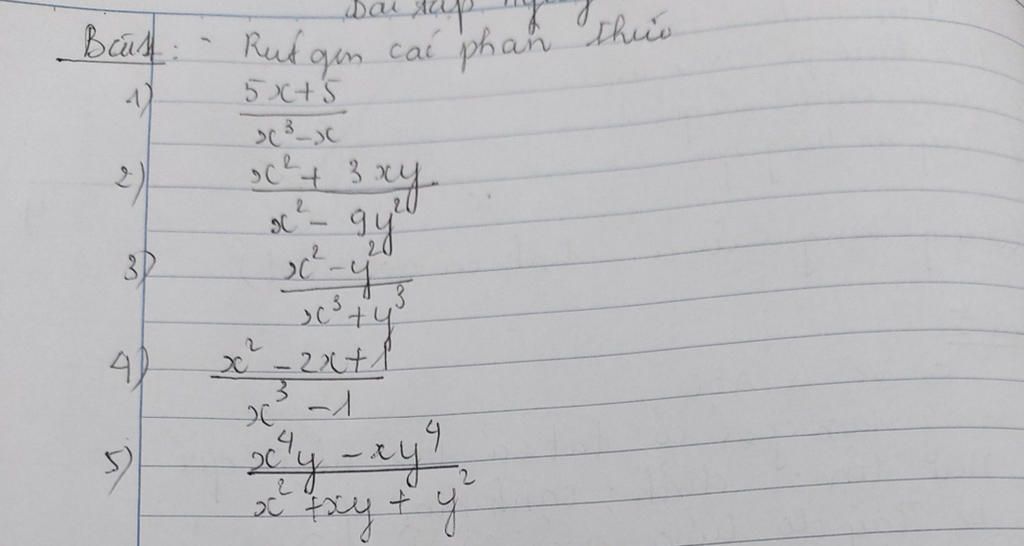 Bài 1: - Rut gọn các phan thức
1) (5x+5)/(x³-x)
2) (x²+ 3xy)/(x²- 9y²)
3) (x²-y²)/(x³+y³)
4) (x²-2x+1)/(x³-1)
5) (x⁴y-xy⁴)/(x²+xy+y²)